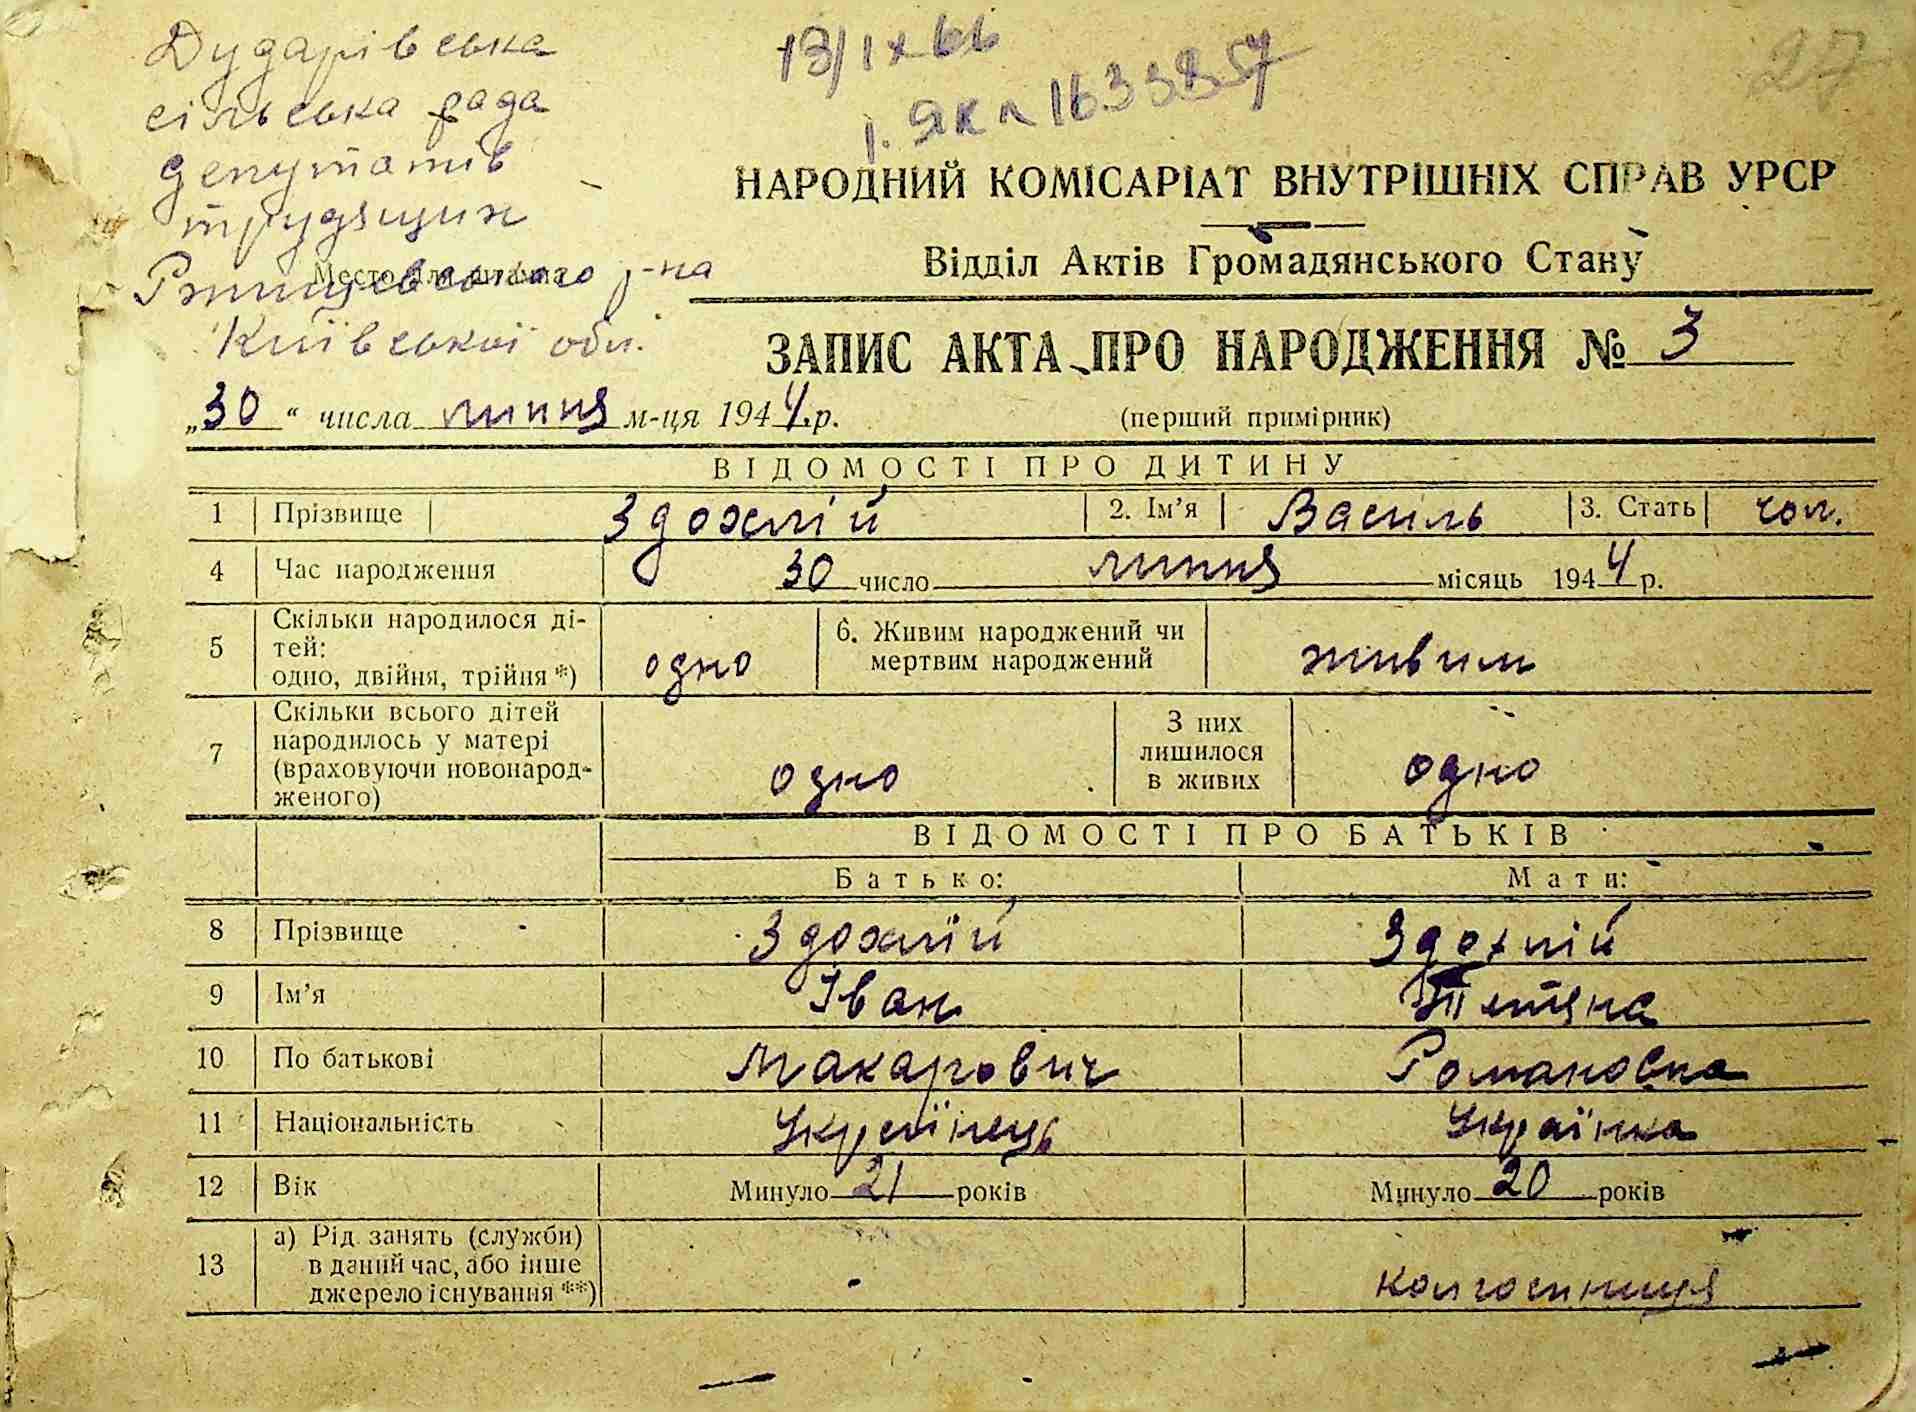 Дударівська
сільська рада
депутатів
трудящих
Ржищевського р-на
Київської обл.
13/IX 66
27
НАРОДНИЙ КОМІСАРІАТ ВНУТРІШНІХ СПРАВ УРСР
Відділ Актів Громадянського Стану
ЗАПИС АКТА ПРО НАРОДЖЕННЯ № 3
„30“ числа липня м-ця 1944 р. (перший примірник)
ВІДОМОСТІ ПРО ДИТИНУ
1 Прізвище Здохлій 2. Ім’я Василь 3. Стать чол.
4 Час народження 30 число липня місяць 1944 р.
5 Скільки народилося ді-
тей:
одно, двійня, трійня *) одно 6. Живим народжений чи
мертвим народжений живим
7 Скільки всього дітей
народилось у матері
(враховуючи новонарод-
женого) одно З них
лишилося
в живих одно
ВІДОМОСТІ ПРО БАТЬКІВ
Батько: Мати:
8 Прізвище Здохлій Здохлій
9 Ім’я Іван Тетяна
10 По батькові Макарович Романовна
11 Національність Українець Українка
12 Вік Минуло 21 років Минуло 20 років
13 а) Рід занять (служби)
в даний час, або інше
джерело існування **) - колгоспниця